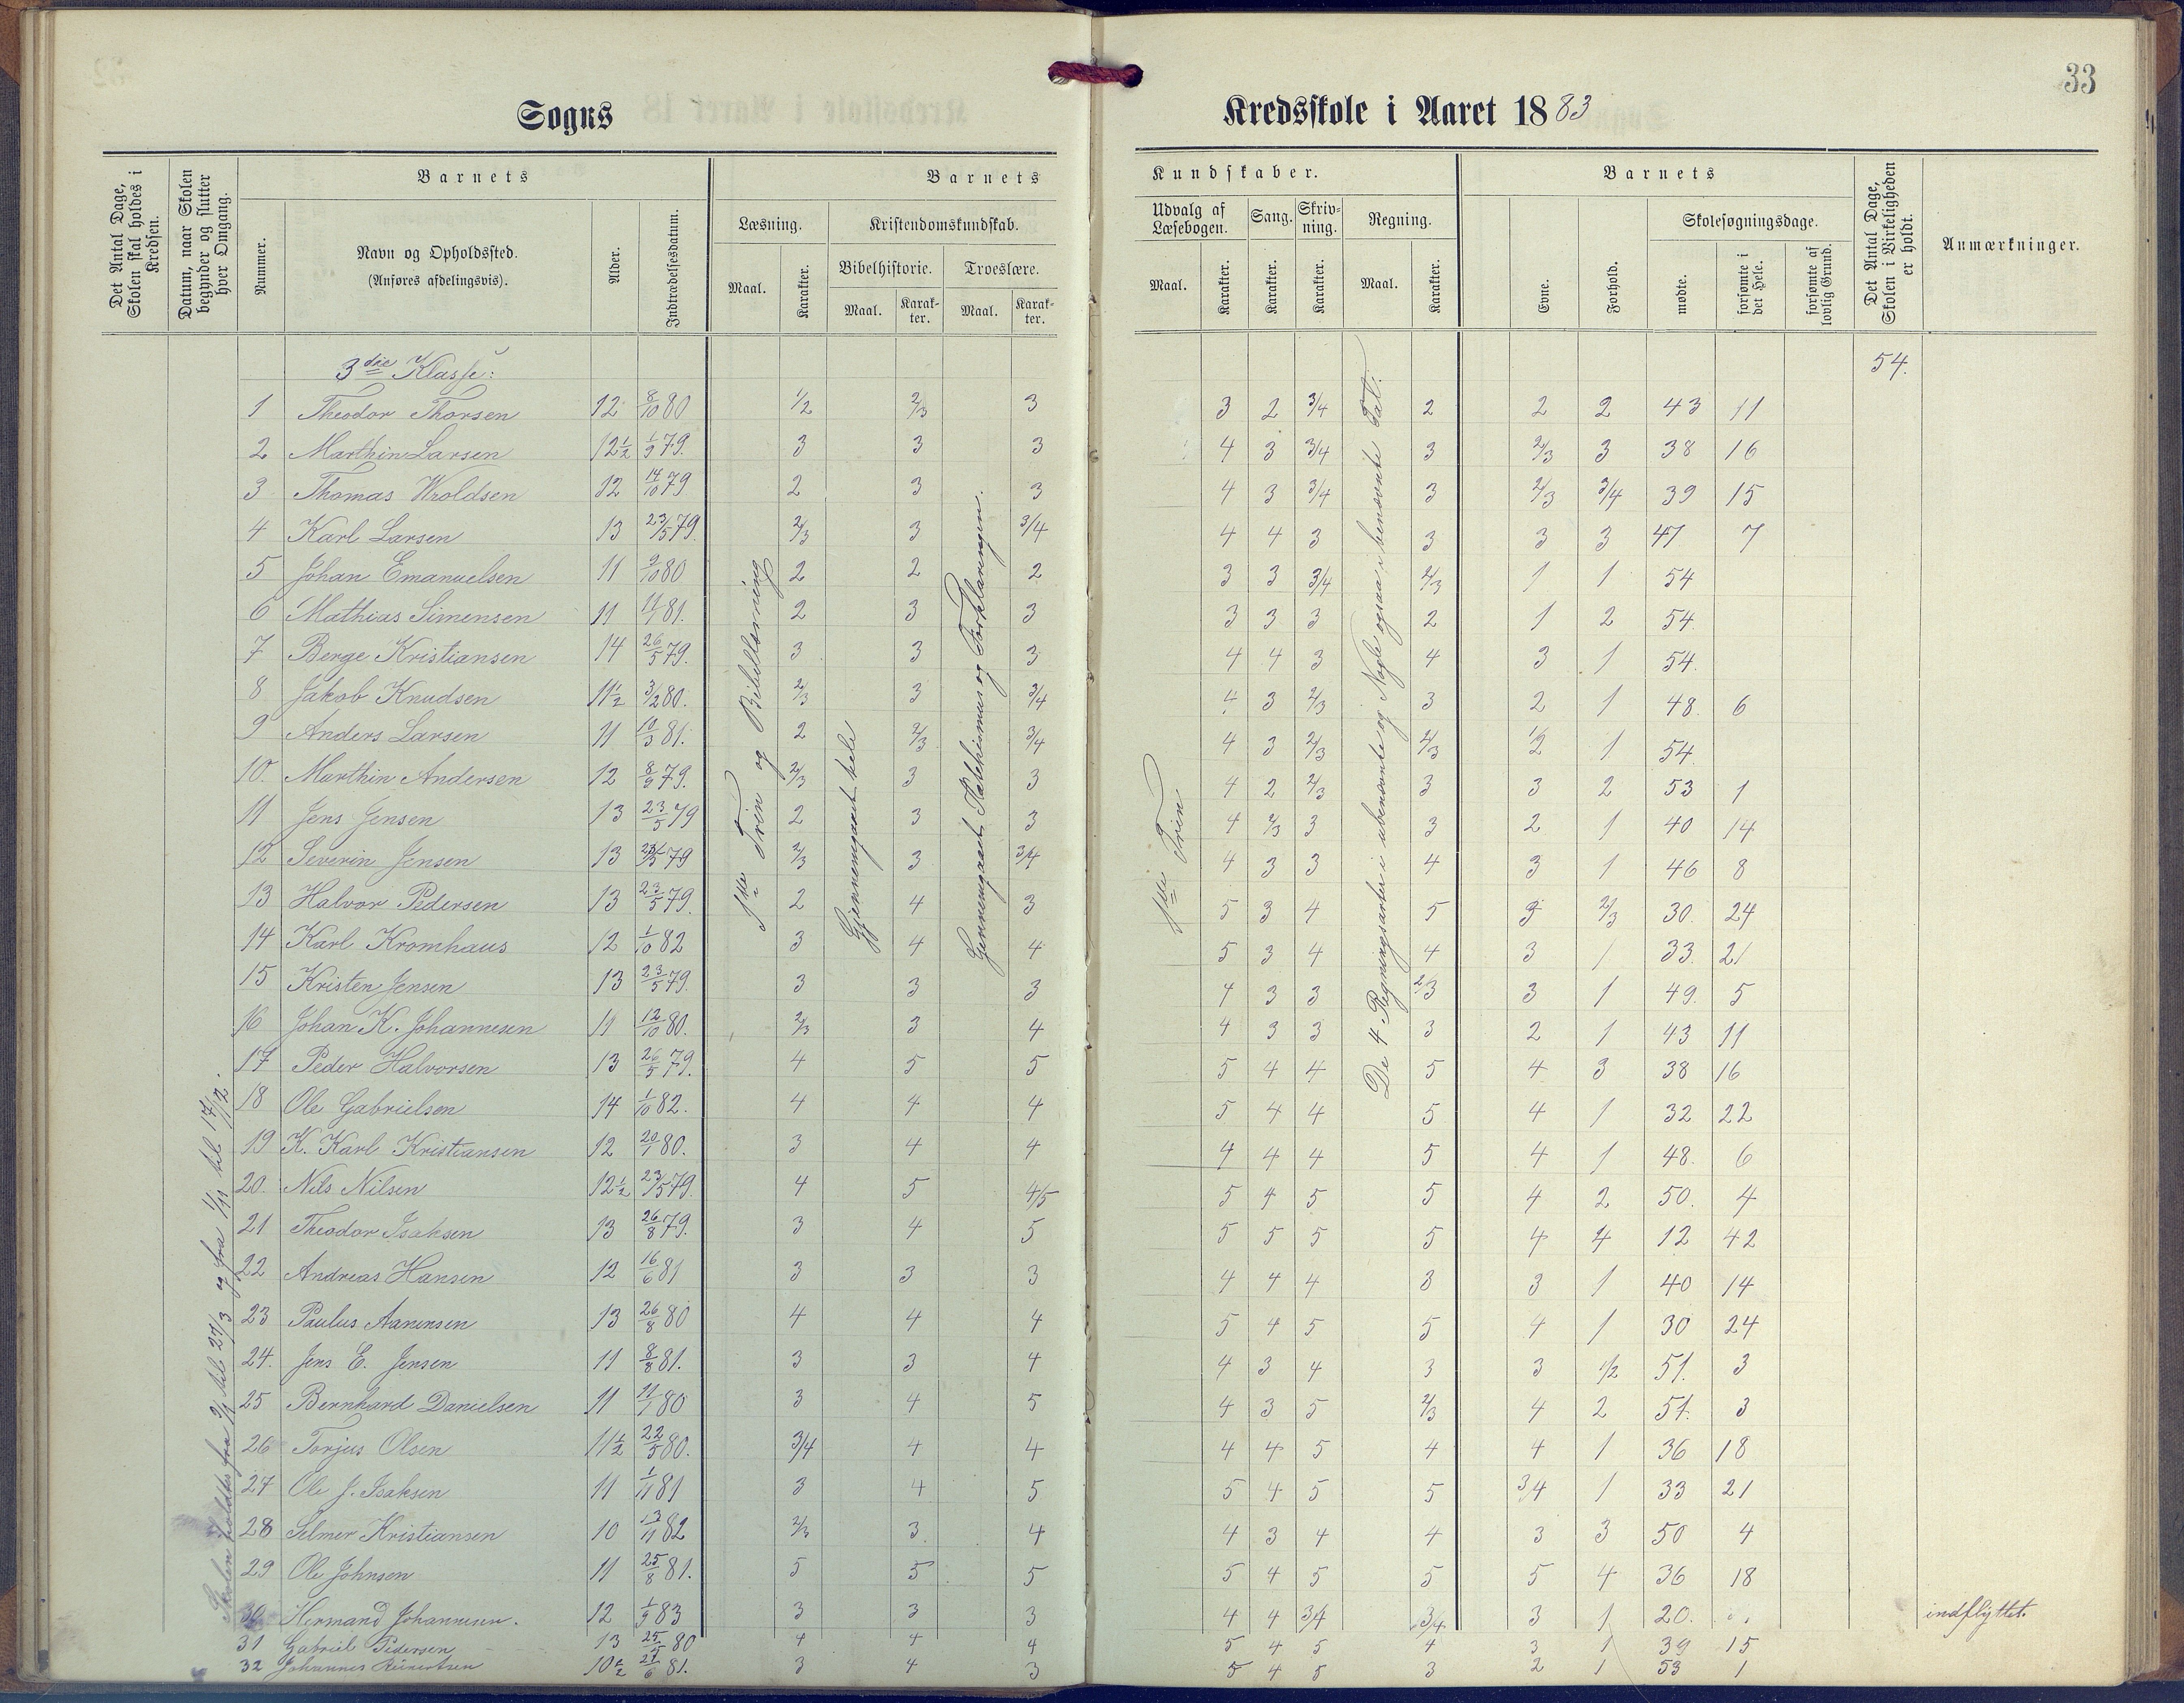 33
Sogns Kredsskole i Aaret 1883
Det Antal Dage, Skolen skal holdes i Kredsen.
Datum, naar Skolen begynder og slutter hver Omgang.
Barnets
Nummer.
Navn og Opholdssted.
(Anføres afdelingsvis).
Alder.
Indtrædelsesdatum.
Barnets Kundskaber.
Læsning.
Maal.
Karakter.
Kristendomskundskab.
Bibelhistorie.
Maal.
Karakter.
Troeslære.
Maal.
Karakter.
Udvalg af Læsebogen.
Maal.
Karakter.
Sang.
Karakter.
Skrivning.
Karakter.
Regning.
Maal.
Karakter.
Barnets
Evne.
Forhold.
Skolesøgningsdage.
mødte.
forsømte i det Hele.
forsømte af lovlig Grund.
Det Antal Dage, Skolen i Virkeligheden er holdt.
Anmærkninger.
3die Klasse: 54.
1 Theodor Thorsen 12 8/10 80 1/2 2/3 3 3 2 3/4 2 2 2 43 11
2 Marthin Larsen 12½ 1/9 79. 3 3 3 4 3 3/4 3 2/3 3 38 16
3 Thomas Wroldsen 12 14/10 79 2 3 3 4 3 3/4 3 2/3 3/4 39 15
4 Karl Larsen 13 23/5 79. 2/3 3 3/4 4 4 3 3 3 3 47 7
5 Johan Emanuelsen 11 9/10 80 2 2 2 3 3 3/4 2/3 1 1 54
6 Mathias Simensen 11 11/1 81. 2 3 3 3 3 3 2 1 2 54
7 Berge Kristiansen 14 26/5 79. 3 3 3 4 4 3 4 3 1 54.
8 Jakob Knudsen 11½ 3/2 80. 2/3 3 3/4 4 3 2/3 3 2 1 48. 6
9 Anders Larsen 11 10/3 81. 2 2/3 3/4 4 3 2/3 2/3 1/2 1 54.
10. Marthin Andersen 12 8/9 79. 2/3 3 3 4 2 2/3 3 3 2 53 1
11 Jens Jensen 13 23/5 79 2 3 3 4 2/3 3 3 2 1 40 14
12 Severin Jensen 13 23/5 79 2/3 3 3/4 4 3 3 4 3 1 46 8
13 Halvor Pedersen 13 23/5 79. 2 4 3 5 3 4 5 3 2/3 30. 24
14 Karl Kromhaus 12 1/10 82 3 4 4 5 3 4 4 3 1 33. 21
15 Kristen Jensen 13 23/5 79. 3 3 3 4 3 3 2/3 3 1 49. 5
16 Johan K. Johannesen 11 12/10 80. 2/3 3 4 4 3 3 3 2 1 43 11
17 Peder Halvorsen 13 26/5 79. 4 5 5 5 4 4 5 4 3 38 16
18 Ole Gabrielsen 14 1/10 82. 4 4 4 5 4 4 5 4 1 32 22
19 K. Karl Kristiansen 12 20/1 80. 3 4 4 4 4 4 5 4 1 48. 6
20. Nils Nilsen 12½ 23/5 79. 4 5 4/5 5 4 5 5 4 2 50. 4
21 Theodor Isaksen 13 26/8 79. 3 4 5 5 5 5 5 4 4 12 42
22 Andreas Hansen 12 16/6 81 3 3 3 4 4 4 3 3 1 40 14
23 Paulus Aanensen 13 26/8 80 4 4 4 5 4 5 5 4 1 30 24
24. Jens E. Jensen 11 8/8 81. 3 3 4 4 3 4 3 3 1/2 51. 3
25 Bernhard Danielsen 11 11/1 80 3 4 5 4 3 5 2/3 4 2 51. 3
26 Torjus Olsen 11½ 22/5 80. 3/4 4 4 4 4 5 4 4 1 36 18
27 Ole J. Isaksen 11 1/11 81 3 4 5 5 4 5 5 3/4 1 33 21
28 Selmer Kristiansen 10 13/11 82 2/3 3. 4 4 3 4 4 3 3 50 4
29 Ole Johnsen 11 25/8 81. 5 5 5 5 4 5 5 5 4 36 18
30 Hermand Johannesen. 12 1/9 83 3 3 3 4 4 3/4 3/4 3 1 20. indflyttet.
31 Gabriel Pedersen 13 25/5 80 4 4 4 5 4 5 4 3 1 39 15
32 Johannes Reinertsen 10½ 27/6 81. 3 4 3 5 4 5 3 2 1 53 1
Skolen holdtes fra 9/1 til 27/3 og fra 1/11 til 17/12.
1ste Trin og Bibellæsning
Gjennemgaaet hele
Gjennemgaaet Katekismus og Forklaringen.
1ste Trin
De 4 Regningsarter i ubenævnte og Nogle ogsaa i benævnte Tal.